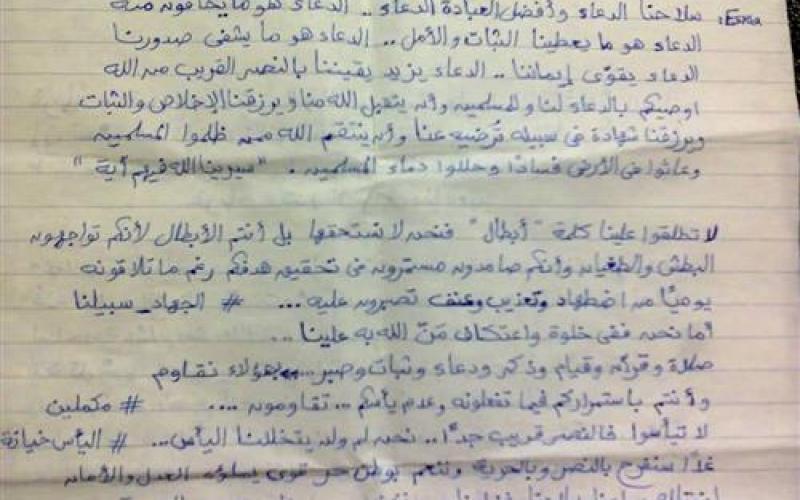 سلاحنا الدعاء وأفضل العبادة الدعاء.. الدعاء هو ما يخافونه منه
الدعاء هو ما يعطينا الثبات والأمل.. الدعاء هو ما يشفى صدورنا
الدعاء يقوّى إيماننا.. الدعاء يزيد يقيننا بالنصر القريب من الله
اوصيكم بالدعاء لنا وللمسلمين وأن يتقبل الله منا ويرزقنا الإخلاص والثبات
ويرزقنا شهادة فى سبيله تُرضيه عنا وأن ينتقم الله ممن ظلموا المسلمين
وعاثوا فى الأرض فسادًا وحللوا دماء المسلمين. "سيرينا الله فيهم أية"
لا تطلقوا علينا كلمة "أبطال" فنحن لا نستحقها بل أنتم الأبطال لأنكم تواجهون
البطش والطغيان وأنكم صامدون مستمرون فى تحقيق هدفكم رغم ما تلاقونه
يوميًا من اضطهاد وتعزيب وعنف تصبرون عليه... # الجهاد_سبيلنا
أما نحن ففى خلوة واعتكاف مَنّ الله به علينا...
صلاة وقرآن وقيام وذكر ودعاء وثبات وصبر... بهؤلاء نقاوم
وأنتم باستمراركم فيما تفعلونه وعدم يأسكم... تقاومون.... # مكملين
لا تيأسوا فالنصر قريب جدًا.. نحن لم ولن يتخللنا اليأس... # اليأس خيانة
غدًا سنفرح بالنصر وبالحرية وننعم بوطن حر قوى يسوده العدل والأمان